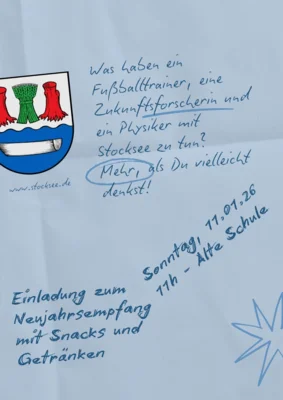 Was haben ein
Fußballtrainer, eine
Zukunftsforscherin und
ein Physiker mit
Stocksee zu tun?
Mehr, als Du vielleicht
denkst!
www.stocksee.de
Sonntag, 11.01.26
11h - Alte Schule
Einladung zum
Neujahrsempfang
mit Snacks und
Getränken